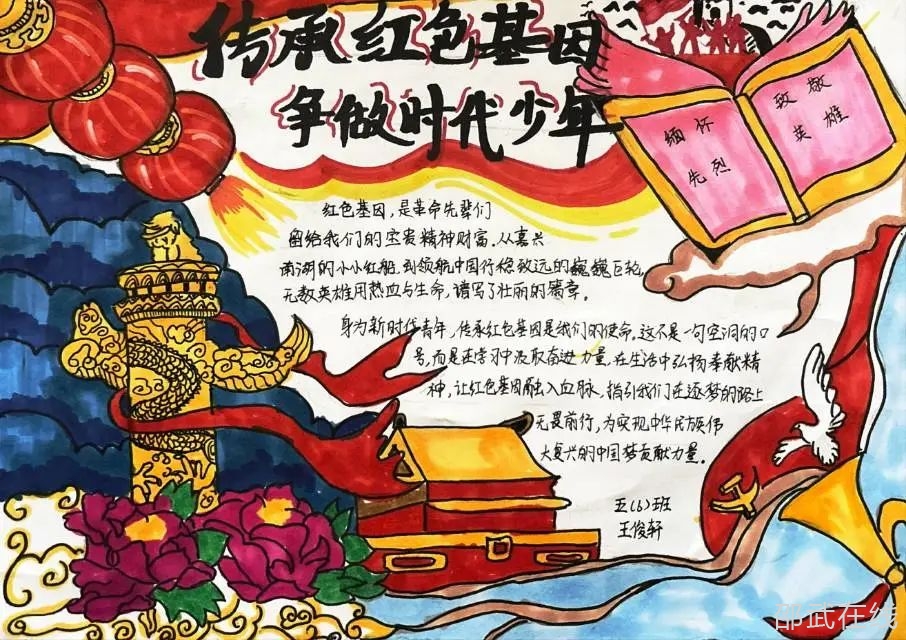 传承红色基因
争做时代少年
缅怀
先烈
致敬
英雄
红色基因，是革命先辈们
留给我们的宝贵精神财富。从嘉兴
南湖的小小红船，到领航中国行稳致远的巍巍巨轮，
无数英雄用热血与生命，谱写了壮丽的篇章。
身为新时代青年，传承红色基因是我们的使命，这不是一句空洞的口
号，而是在学习中汲取奋进力量，在生活中弘扬奉献精
神，让红色基因融入血脉，指引我们在逐梦的路上
无畏前行，为实现中华民族伟
大复兴的中国梦贡献力量。
五(6)班
王俊轩
邵武在线